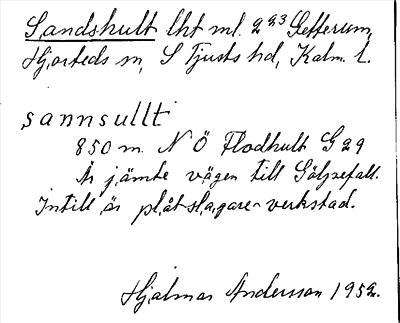 Sandshult lht ml. 2 293 Gefferum,
Hjorteds sn, S Tjusts hd, Kalm. l.
sannsullt
850 m. N Ö Flodhult G 29
Är jämte vägen till Göljrefall.
Intill är plåtslagare-verkstad.
Hjalmar Andersson 1952.